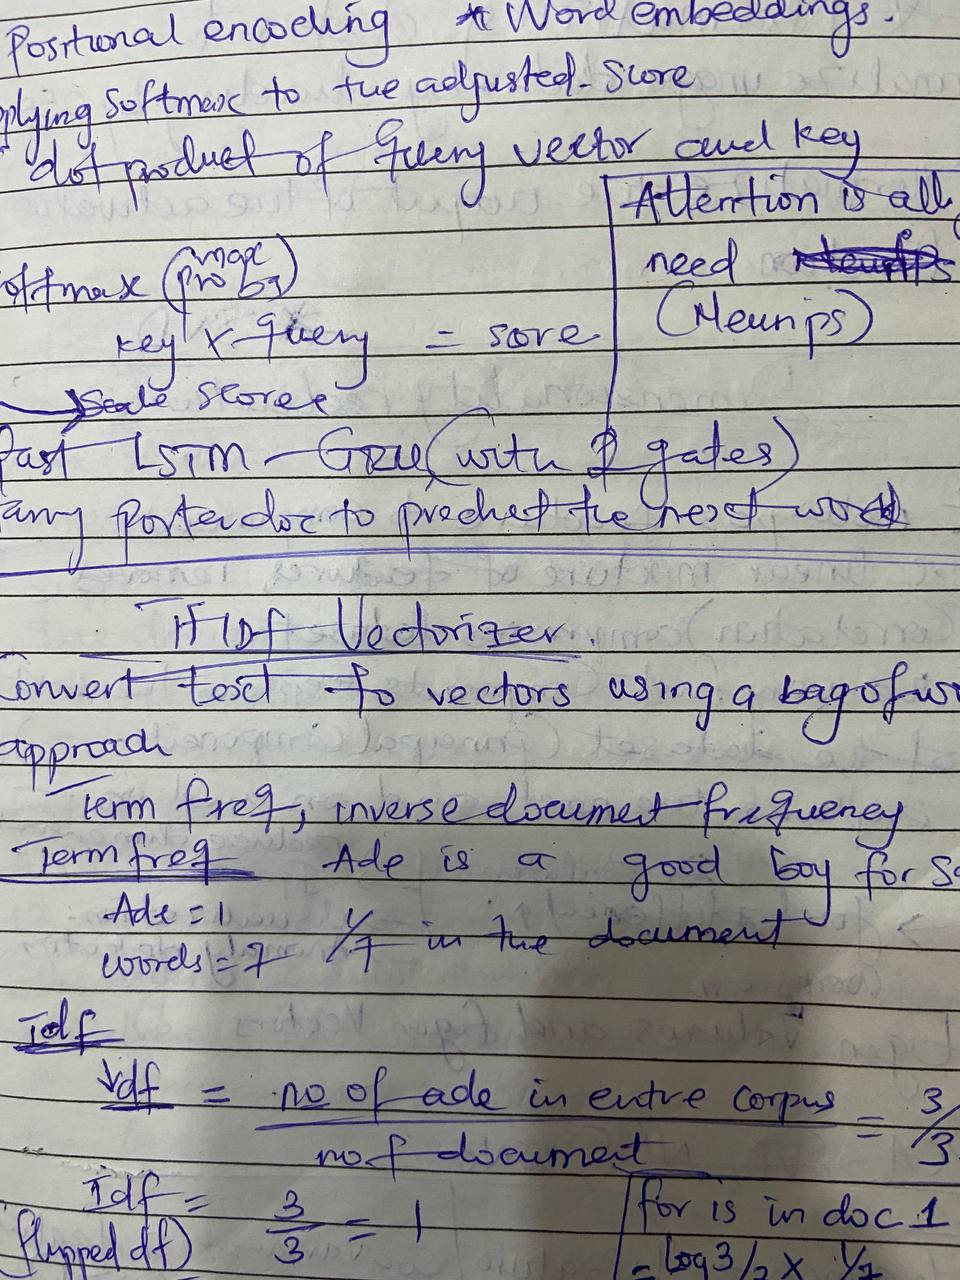 Positional encoding * Word embeddings.
plying softmax to the adjusted score
dot product of Query vector and key
Attention is all
need
(Neurips)
oftmax (max probs)
key x Query = sore
→ Scale scores
Past LSTM - GRU (with 2 gates)
to predict the next word
TFIDf Vectorizer.
Convert text to vectors using a bag of wo
approach
Term freq, inverse document frequency
Term freq Ade is a good boy for S
Ade = 1
words = 7 1/7 in the document
Idf
df = no of ade in entire corpus / no of document = 3/3
Idf = 3/3 = 1
(flipped df)
for is in doc 1
= log 3/2 x 1/7